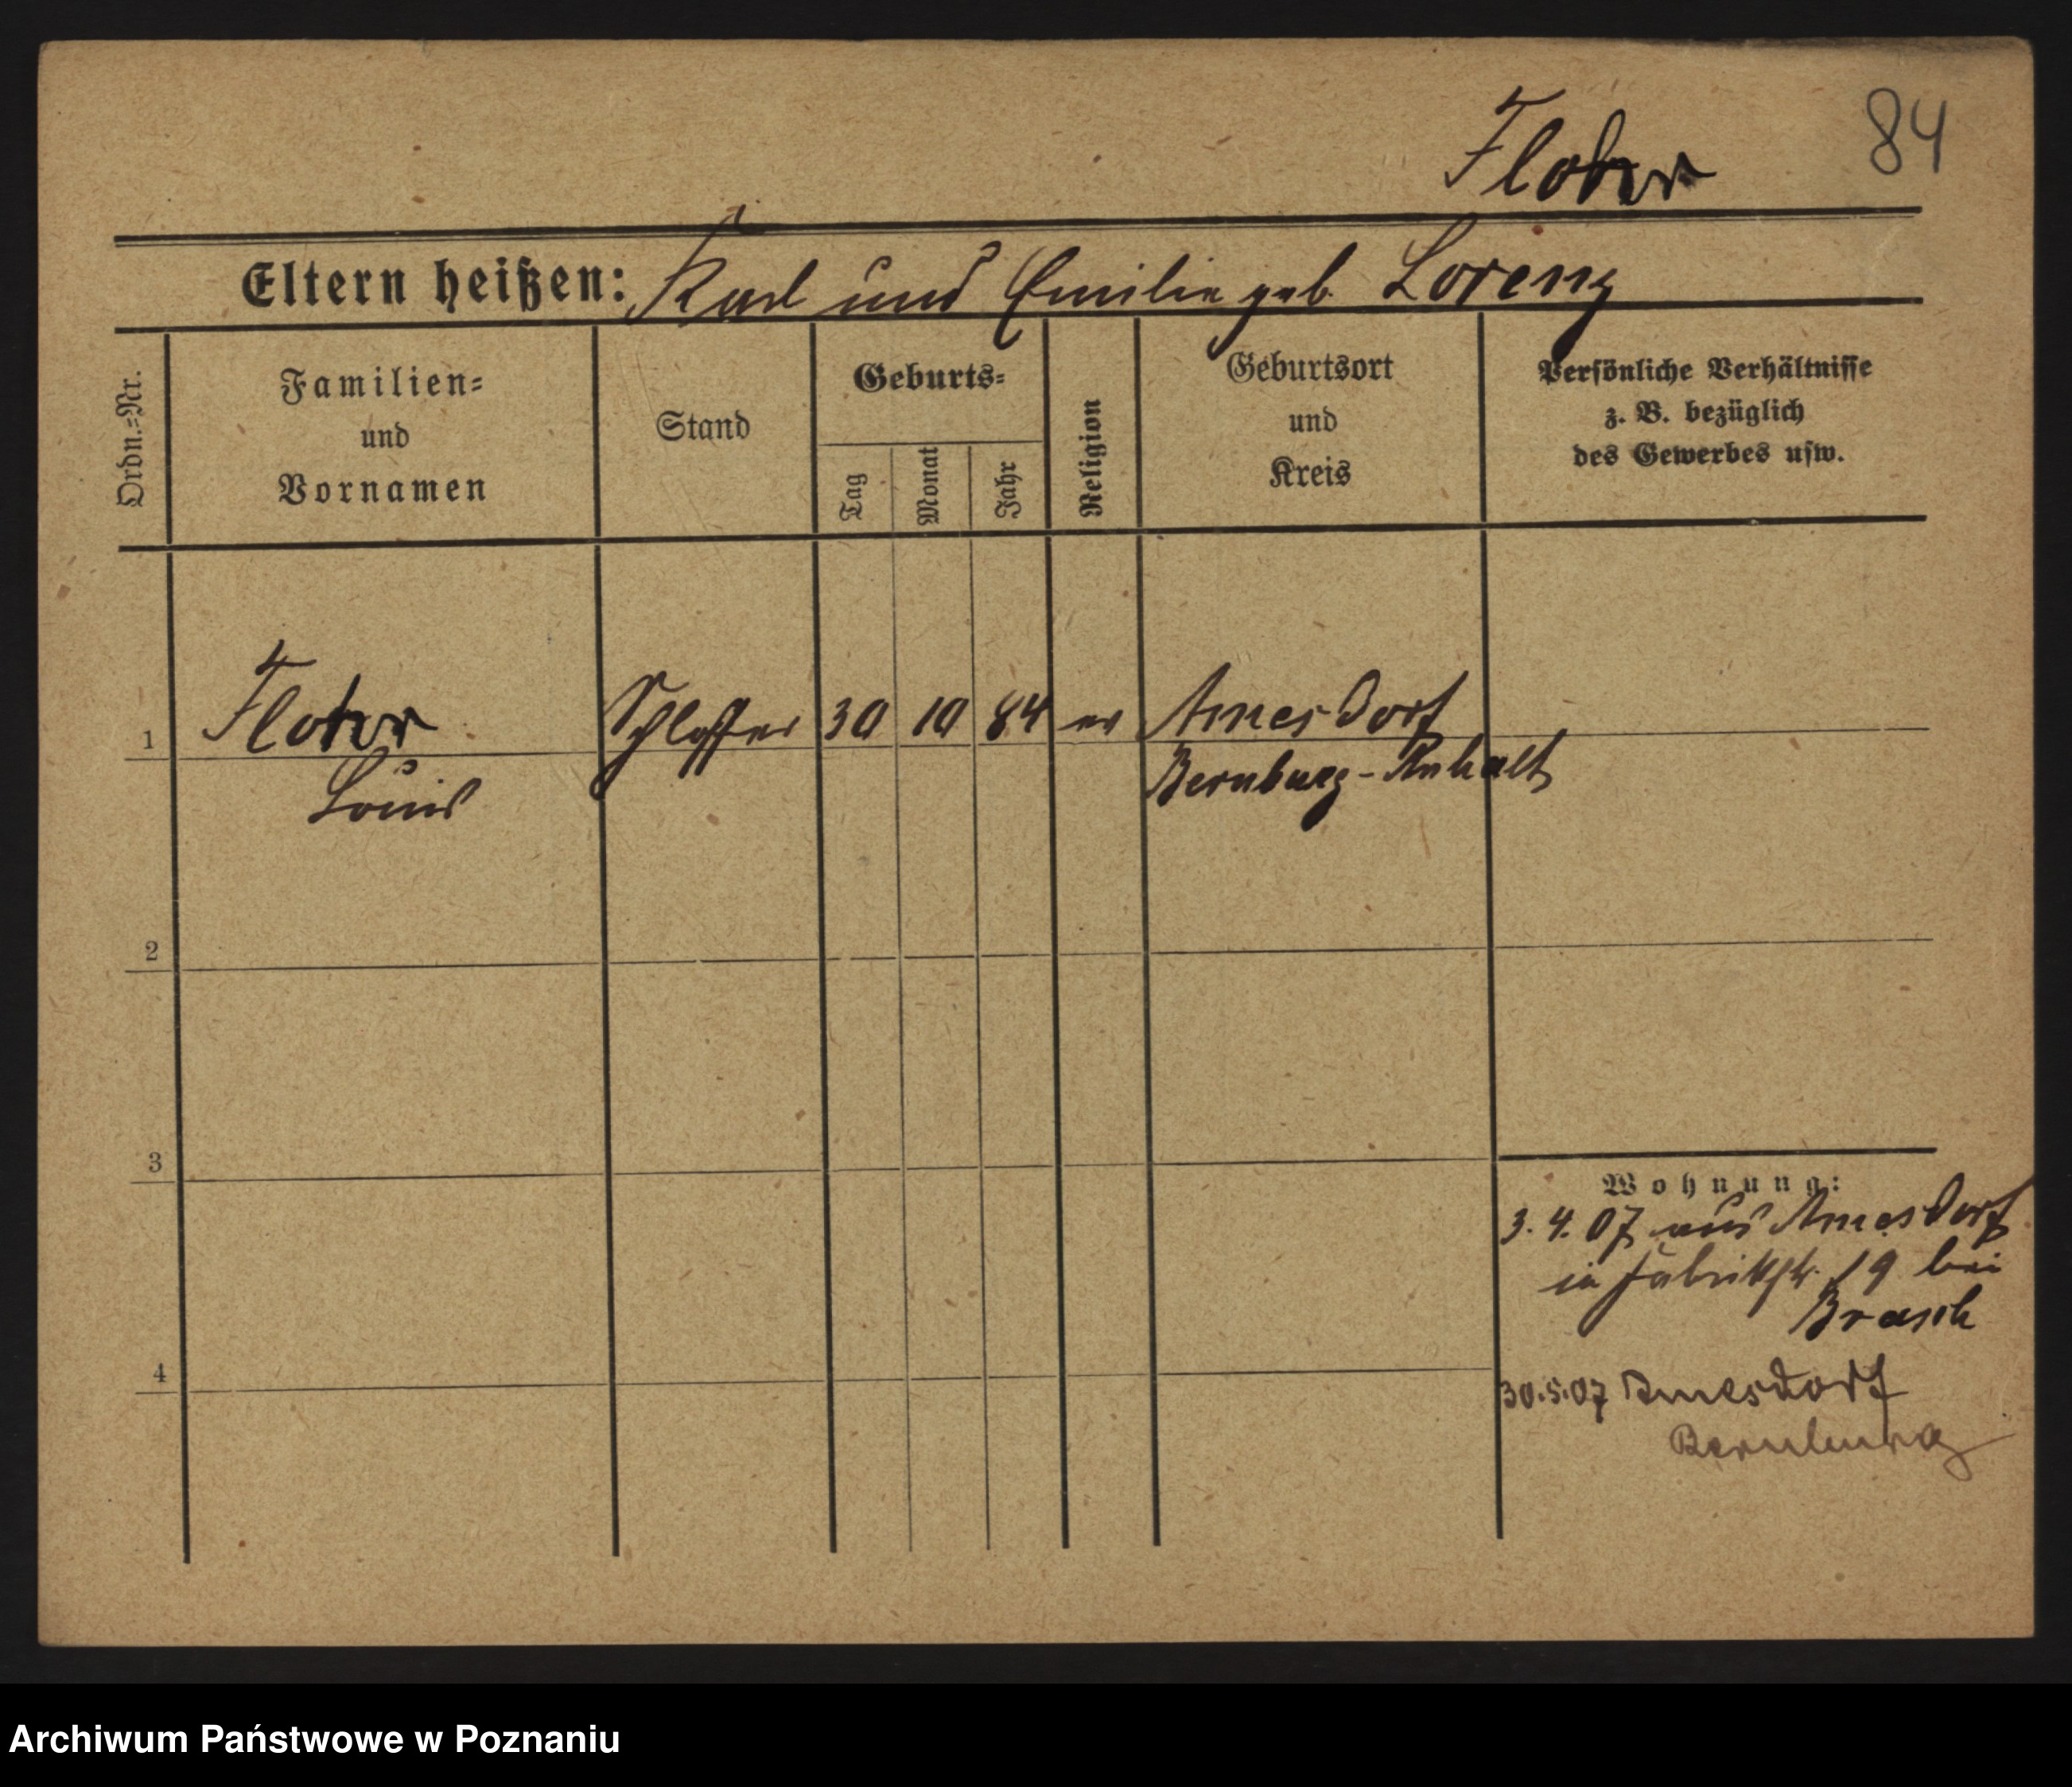 84
Eltern heißen: Karl und Emilie geb. Lorenz
Ordn.=Nr.
Familien=
und
Vornamen
Stand
Geburts=
Tag
Monat
Jahr
Religion
Geburtsort
und
Kreis
Persönliche Verhältnisse
z. B. bezüglich
des Gewerbes usw.
1
Schlosser 30 10 84 ev Amesdorf
Louis
Bernburg-Anhalt
2
3
4
Wohnung:
3. 4. 07 aus Amesdorf
in Fabrikstr. 19 bei
Brasch
30.5.07 Amesdorf
Bernburg
Archiwum Państwowe w Poznaniu